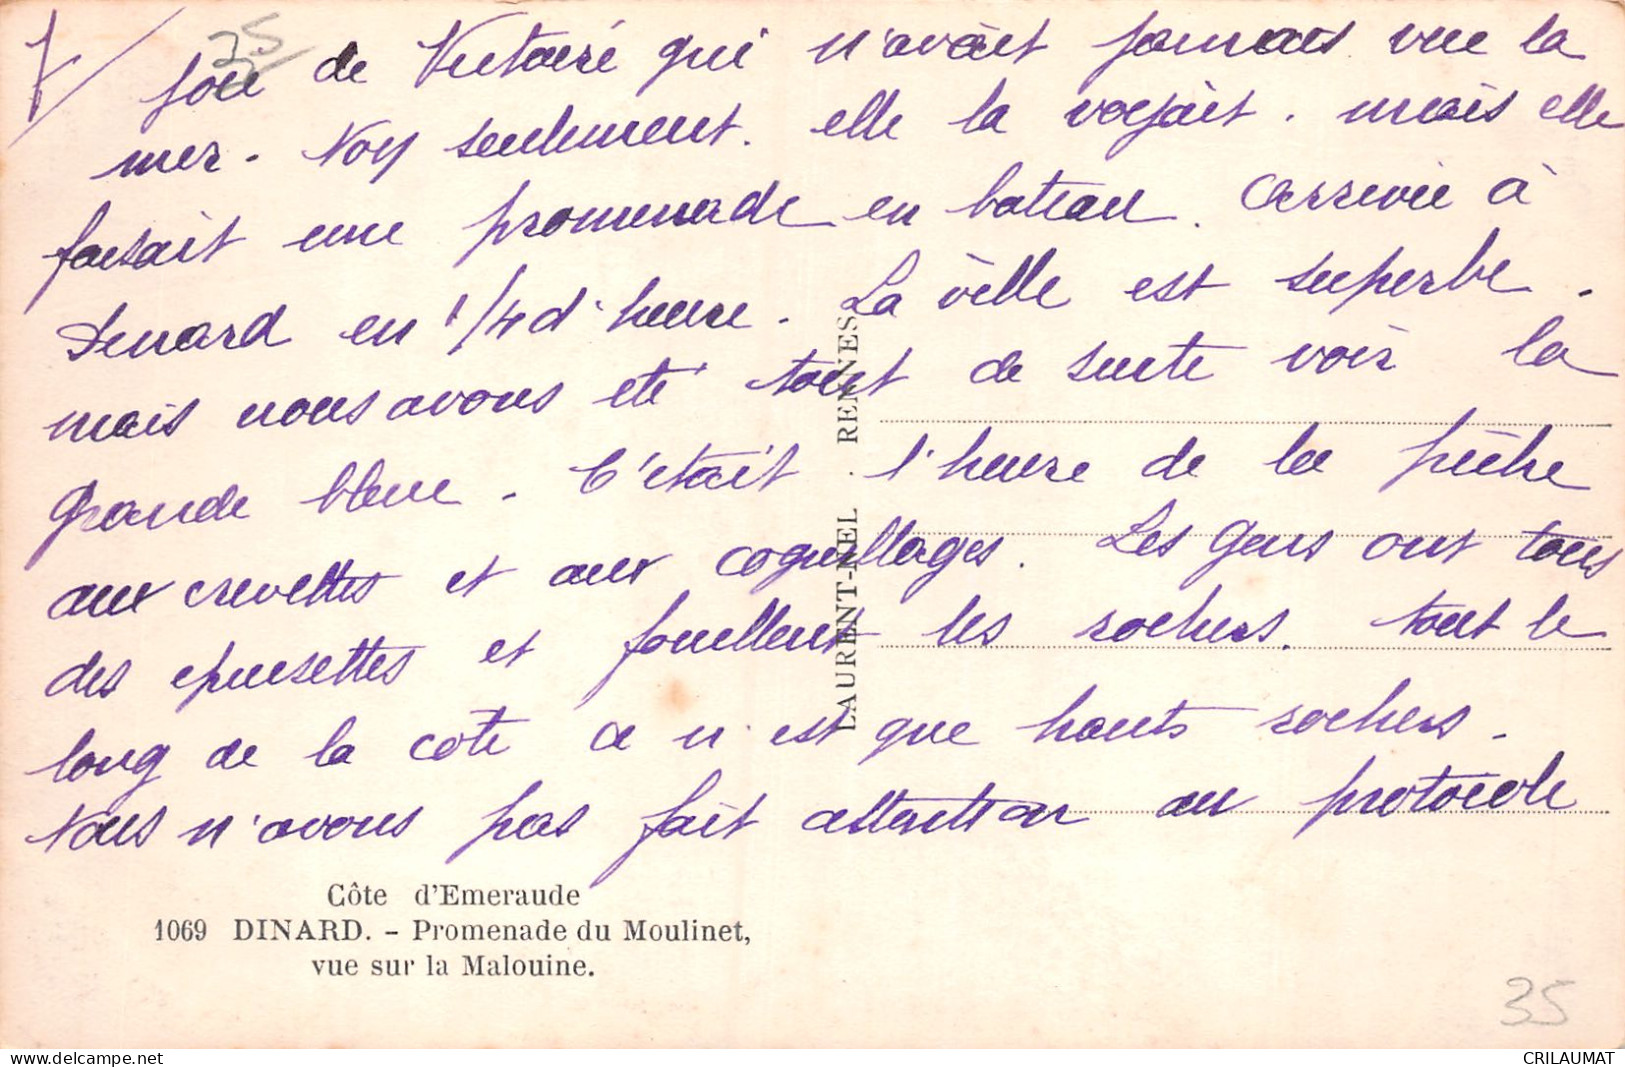 35
Joie de Victoire qui n'avait jamais vue la
mer. Non seulement. elle la voyait. mais elle
faisait une promenade en bateau. Arrivée à
Dinard en 1/4 d'heure. La ville est superbe.
mais nous avons été tout de suite voir la
grande bleue. C'était l'heure de la pêche
aux crevettes et aux coquillages. Les gens ont tous
des epuisettes et fouillent les rochers. tout le
long de la côte ce n'est que hauts rochers.
Nous n'avons pas fait attention au protocole
LAURENT-NEL RENNES
Côte d'Emeraude
1069 DINARD. - Promenade du Moulinet,
vue sur la Malouine.
35
CRILAUMAT